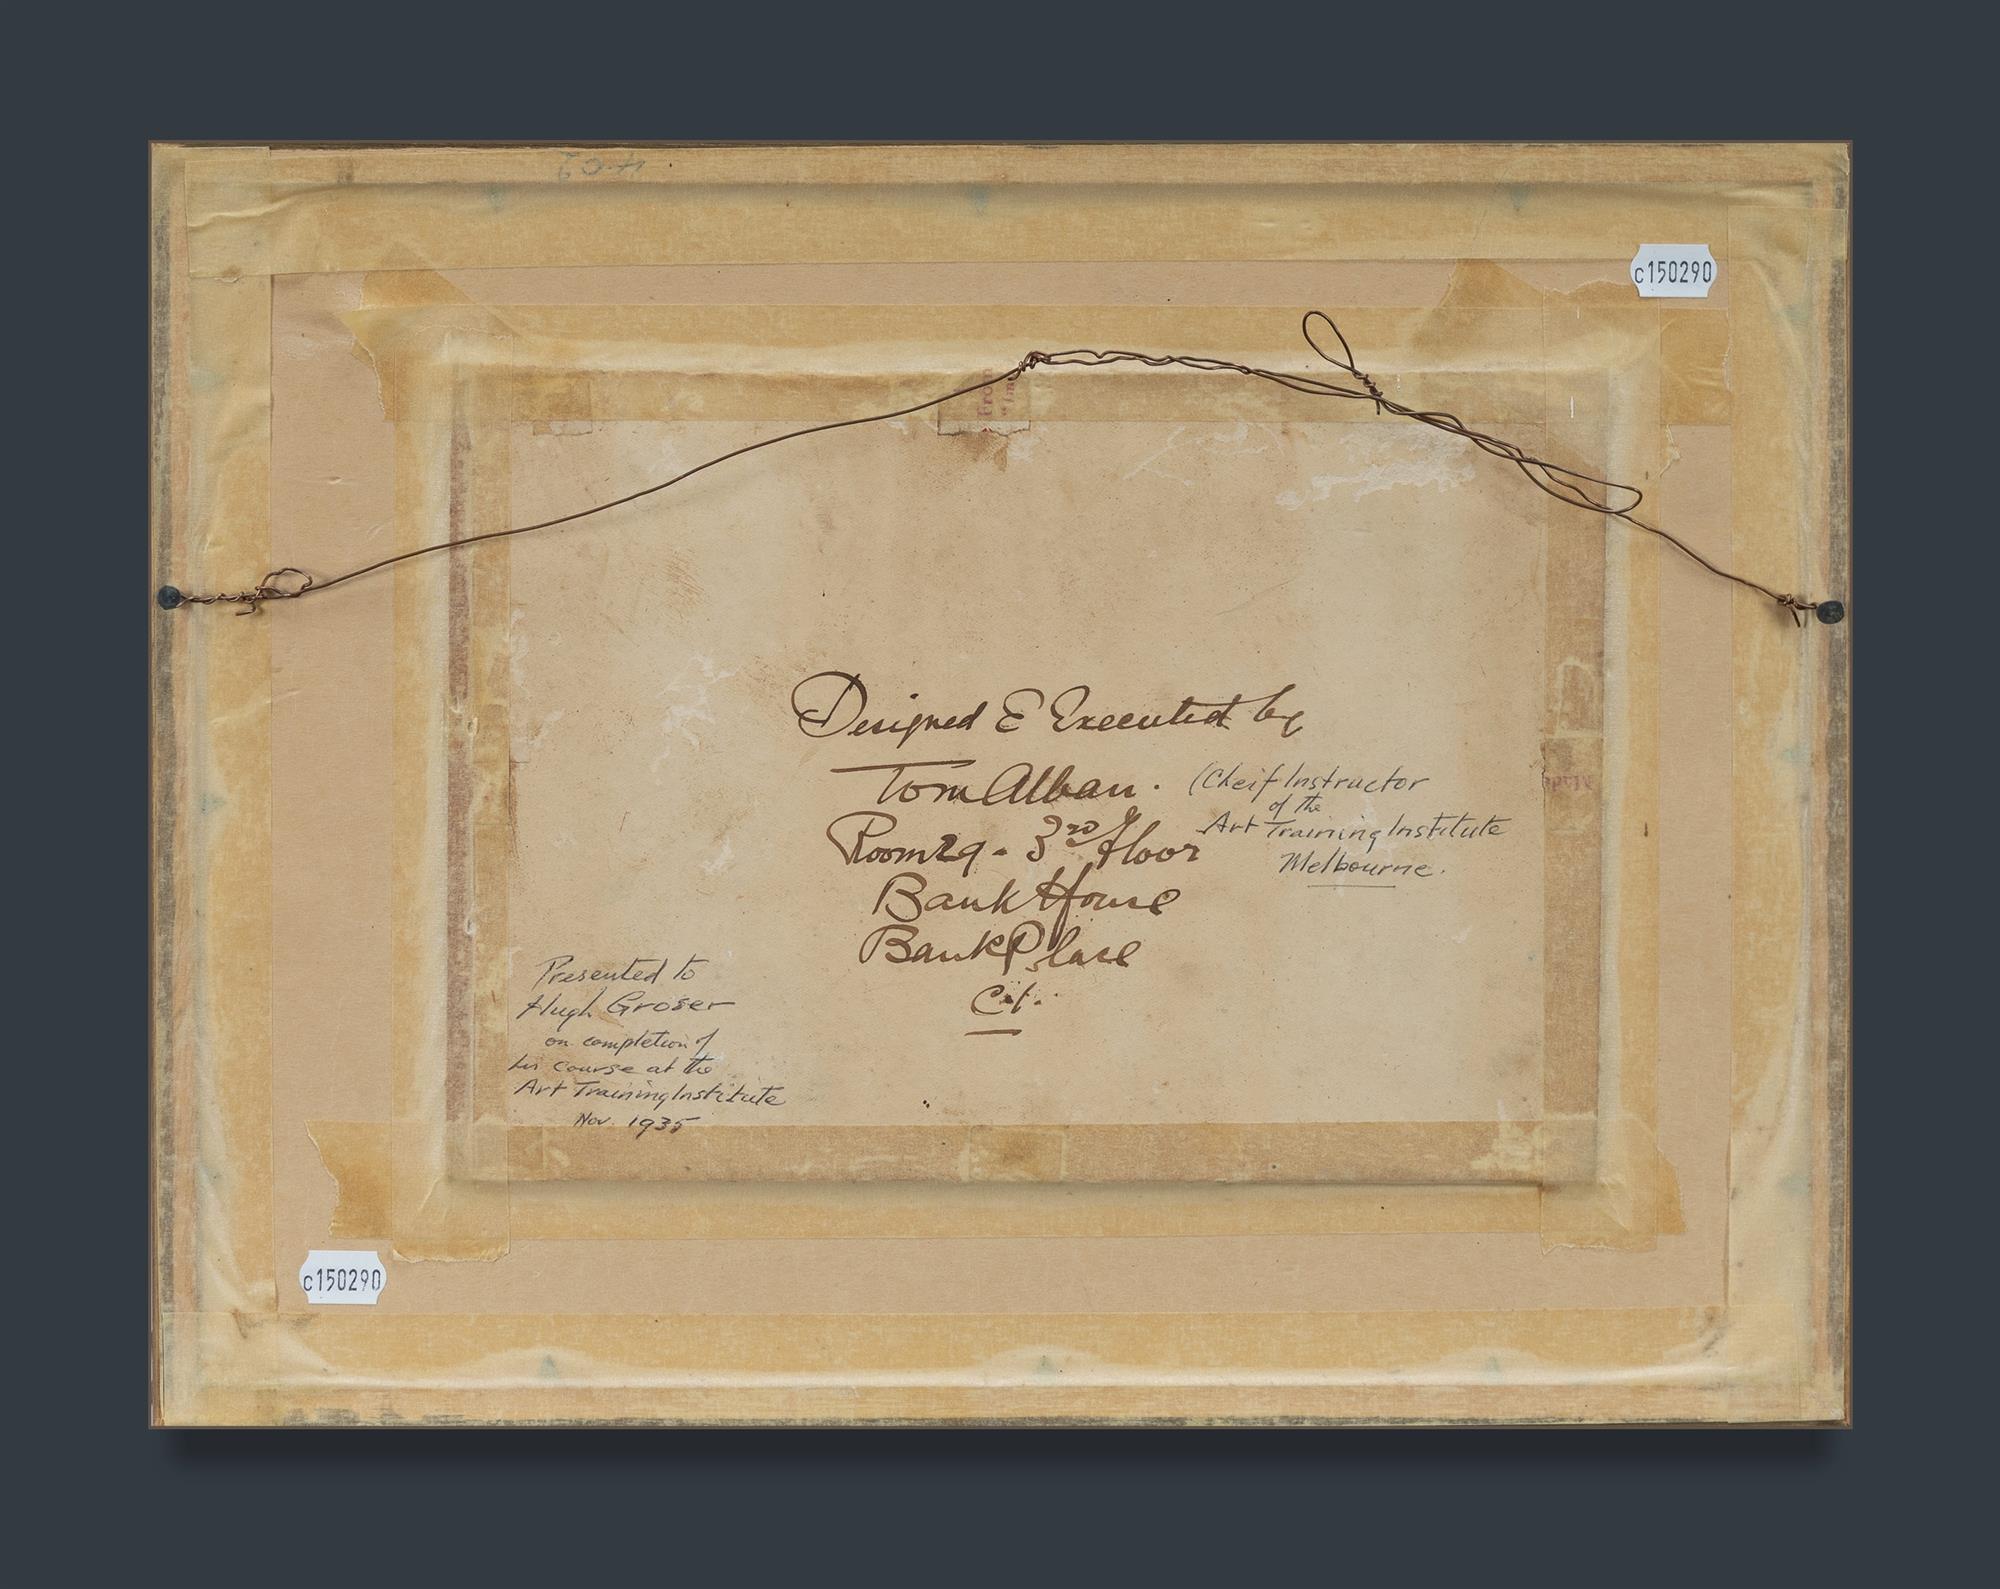 c150290
From
Designed & Executed by
Tom Alban.
Room 29 - 3rd floor
Bank House
Bank Place
Cit.
(Cheif Instructor
of the
Art Training Institute
Melbourne.
Presented to
Hugh Groser
on completion of
his course at the
Art Training Institute
Nov. 1935
c150290